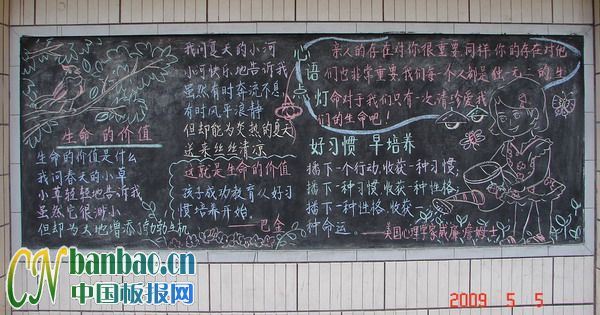 生命的价值
生命的价值是什么
我问春天的小草
小草轻轻地告诉我
虽然它很渺小
但却为大地增添了勃勃生机
我问夏天的小河
小河快乐地告诉我
虽然有时奔流不息
有时风平浪静
但却能为炎热的夏天
送来丝丝清凉
这就是生命的价值
孩子成功教育从好习
惯培养开始。
——巴金
心语点灯
亲人的存在对你很重要,同样,你的存在对他
们也非常重要。我们每一个人都是独一无二的生
命对于我们只有一次,请珍爱我
们的生命吧!
好习惯 早培养
播下一个行动,收获一种习惯;
播下一种习惯,收获一种性格,
播下一种性格,收获一
种命运。
——美国心理学家威廉·詹姆士
CN banbao.cn
中国板报网
2009 5 5